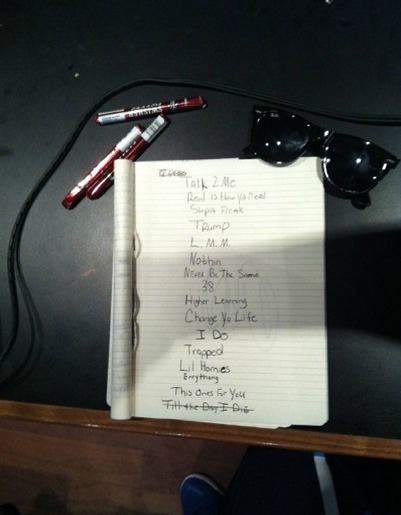 SWISHER
Talk 2 Me
Real is How Ya Feel
Supa Freak
Trump
L.M.M.
Nothin
Never Be The Same
.38
Higher Learning
Change Yo Life
I Do
Trapped
Lil Homies
Errythang
This Ones For You
Till the Day I Die